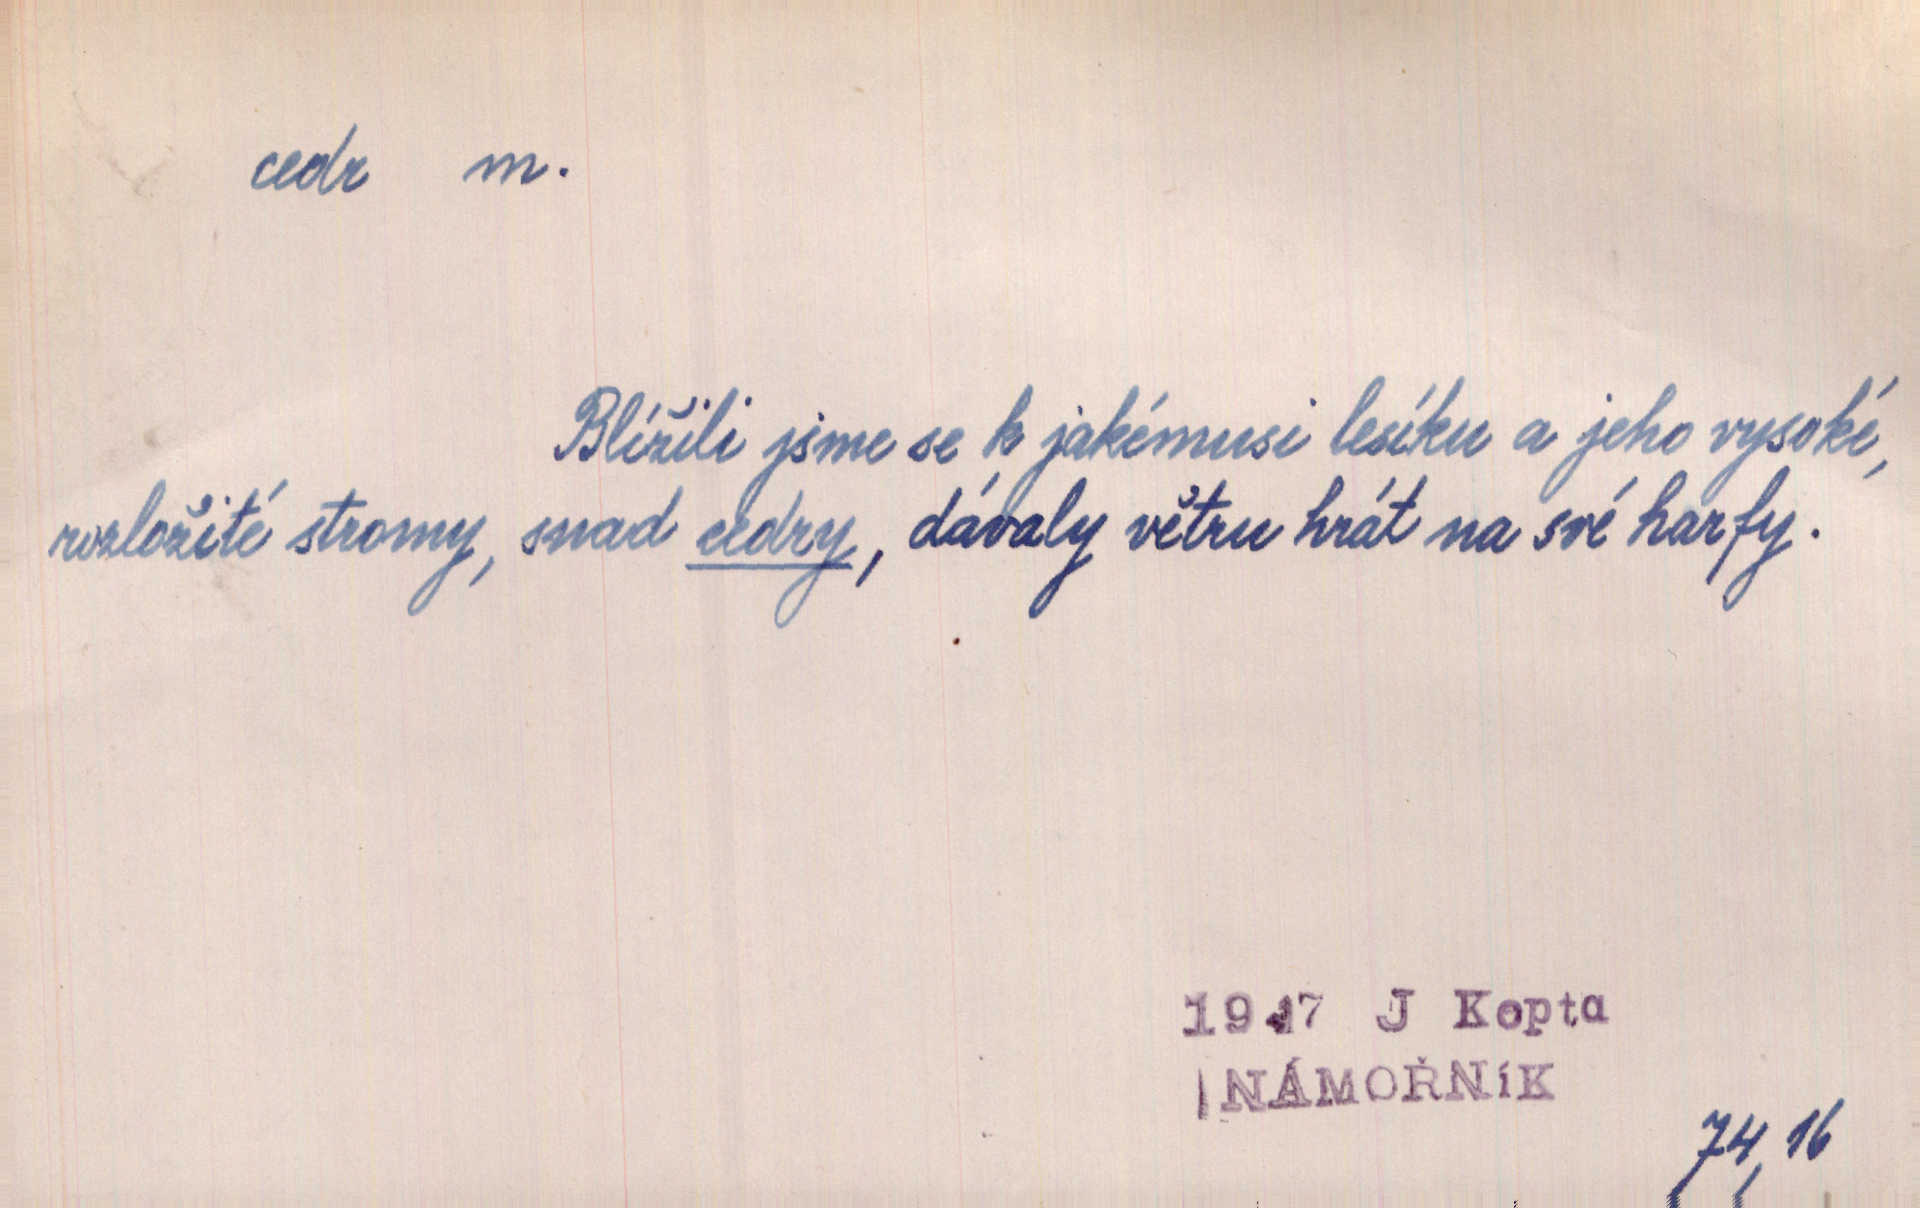 cedr m.
Blížili jsme se k jakémusi lesíku a jeho vysoké,
rozložité stromy, snad cedry, dávaly větru hrát na své harfy.
J Kopta
NÁMOŘNíK
74, 16